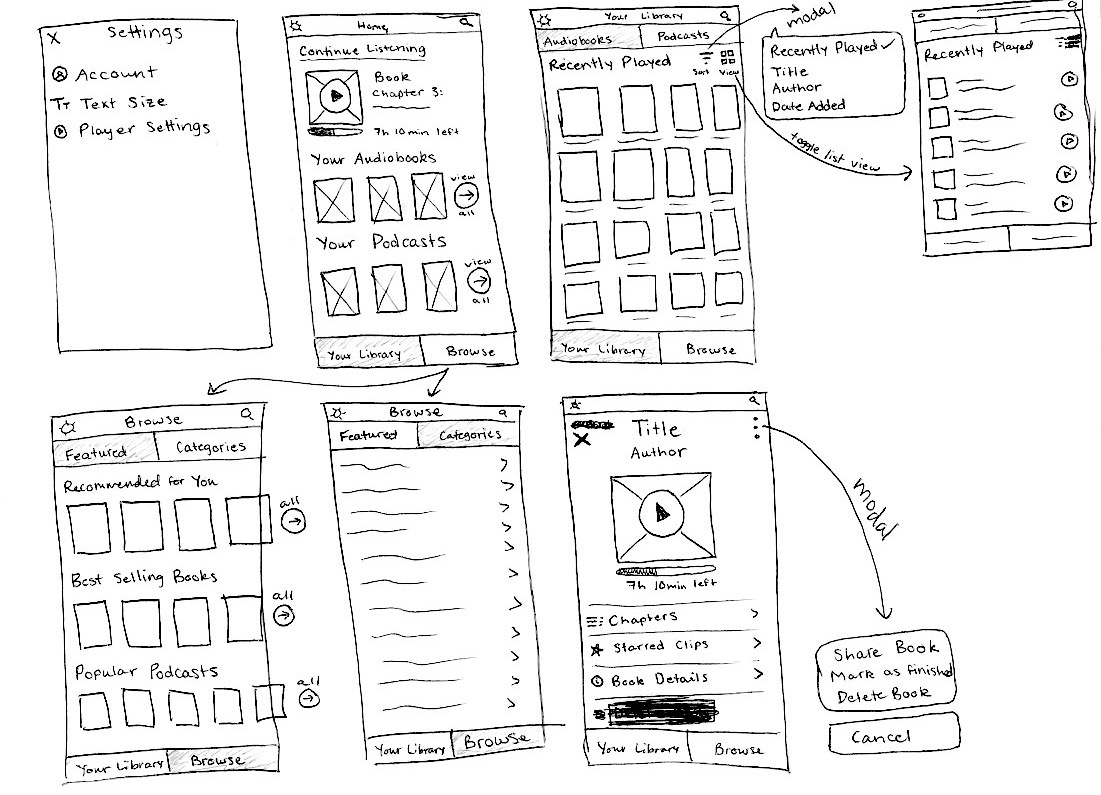 X Settings
Account
TT Text Size
Player Settings
Home
Continue Listening
Book
Chapter 3:
7h 10min left
Your Audiobooks
view
all
Your Podcasts
view
all
Your Library
Browse
Your Library
Audiobooks
Podcasts
Recently Played
Sort
View
Your Library
Browse
modal
Recently Played ✓
Title
Author
Date Added
toggle list view
Recently Played
Browse
Featured
Categories
Recommended for You
all
Best Selling Books
all
Popular Podcasts
all
Your Library
Browse
Browse
Featured
Categories
Your Library
Browse
X
Title
Author
7h 10min left
Chapters
Starred Clips
Book Details
Your Library
Browse
modal
Share Book
Mark as finished
Delete Book
Cancel